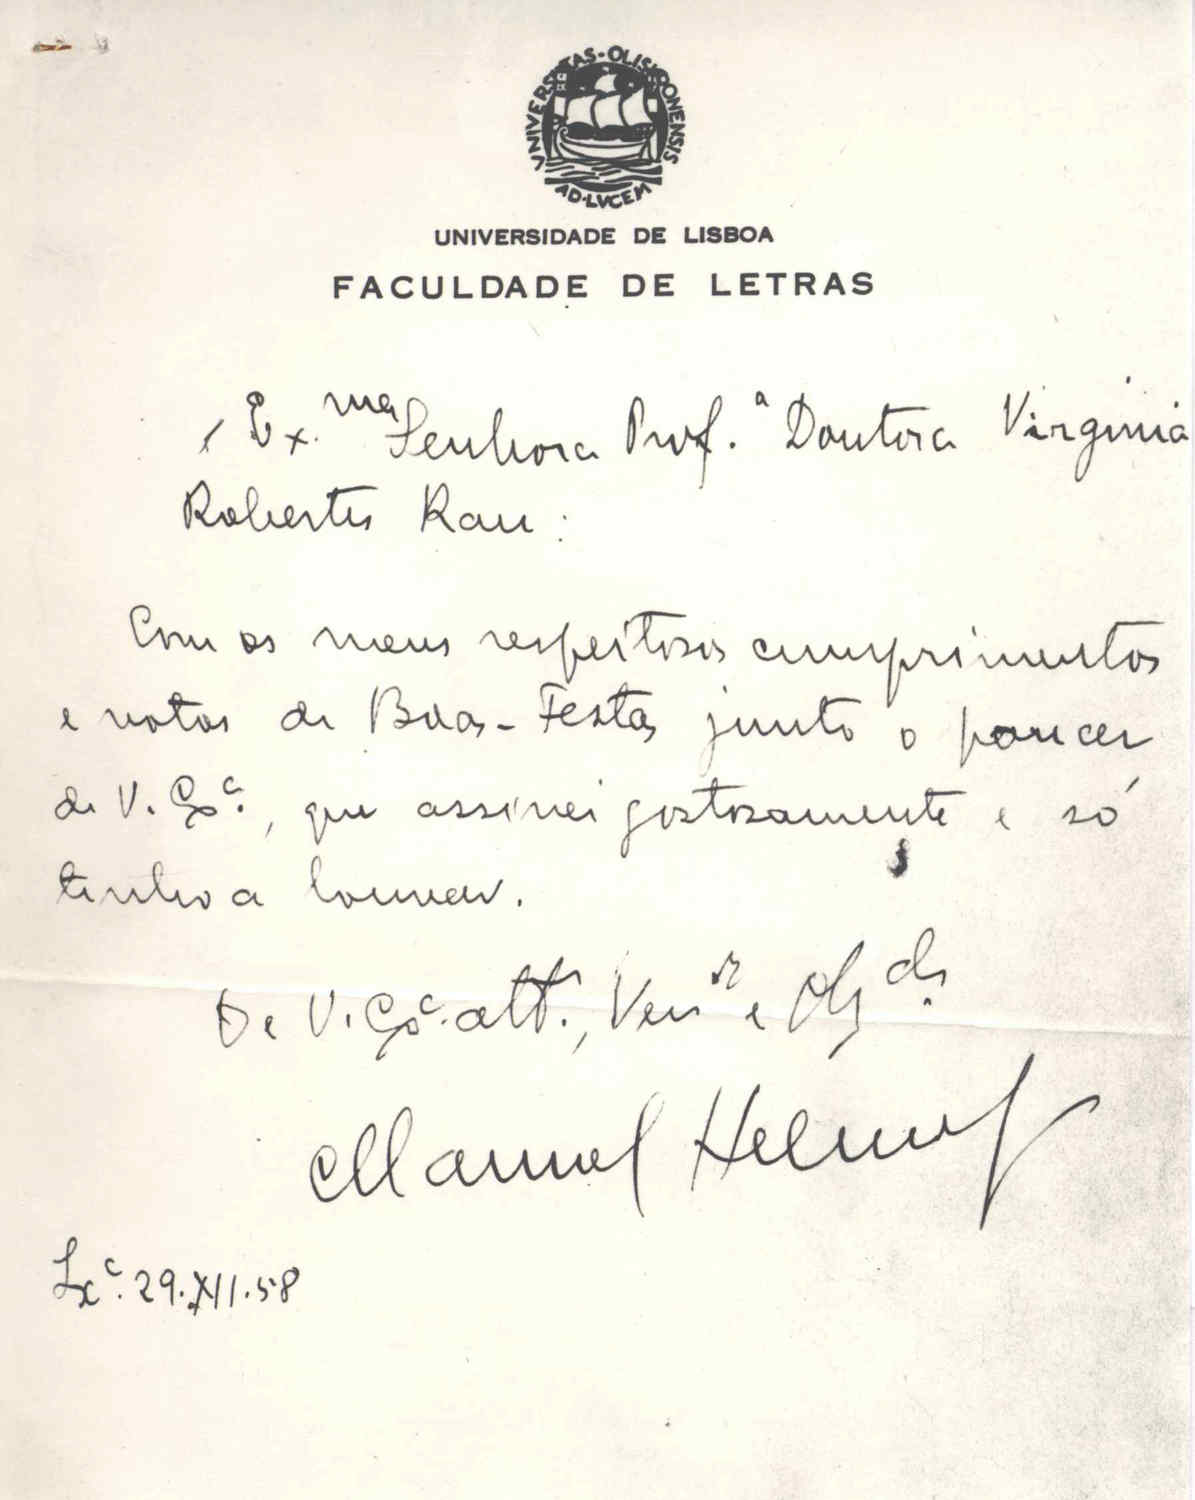 UNIVERSITAS·OLISIPONENSIS
AD·LVCEM
UNIVERSIDADE DE LISBOA
FACULDADE DE LETRAS
Ex.ma Senhora Prof.ª Doutora Virginia
Robertes Rau:
Com os meus respeitosos cumprimentos
e votos de Boas-Festas junto o parecer
de V. Exc., que assinei gostosamente e só
tenho a louvar.
De V. Exc. att., Ven.or e Obg.do
Manuel Heleno
Lxc. 29.XII.58